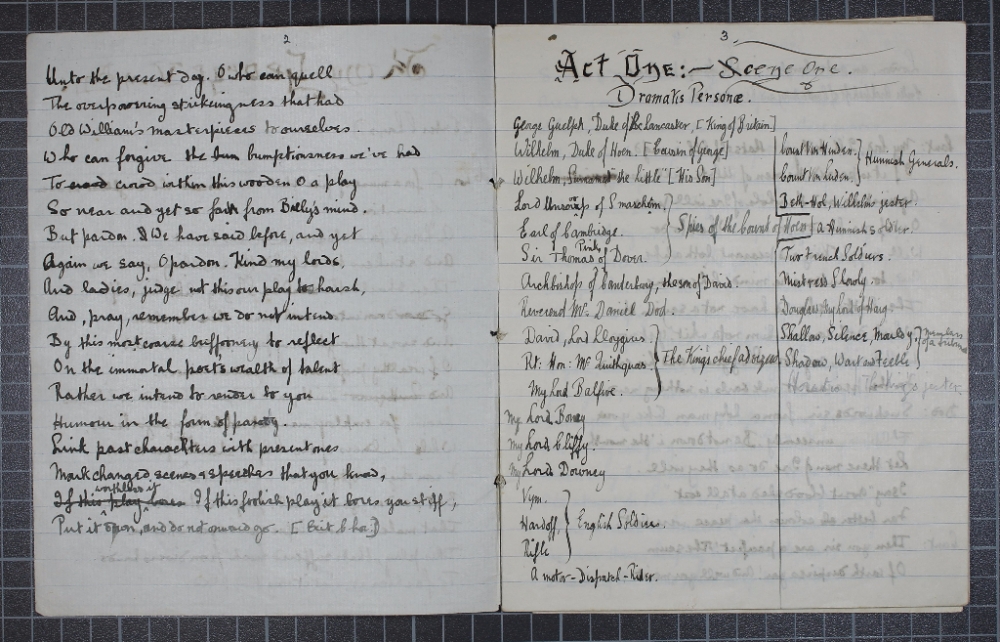 2
Unto the present day. O who can quell
The overpowering strikeingness that had
Old William's masterpieces to ourselves.
Who can forgive the bumptionsness we've had
To crowd within this wooden O a play
So near and yet so far from Billy's mind.
But pardon. We have said before, and yet
Again we say, O pardon. Kind my lords,
And ladies, judge not this our play to harsh,
And, pray, remember we do not intend
By this most coarse buffoonery to reflect
On the immortal poet's wealth of talent
Rather we intend to render to you
Humour in the form of parody.
Link past charackters with present ones
Mark changed scenes & speeches that you know,
If this foolish play it bores you stiff,
Put it upon, and do not onward go. [Exit Cho.]
3.
Act One:— Scene One.
Dramatis Personæ.
George Guelph, Duke of Lancaster, [King of Britain]
Wilhelm, Duke of Hoen. [Cousin of George]
Wilhelm, the Little [His Son]
Lord of Smarchim.
Earl of Cambridge.
Sir Thomas of Dover.
Spies of the Count of Hoen
Archbishop of Canterbury, the son of David.
Reverent Mr. Daniel Dod.
David, Lord Lloygius.
Rt: Hon: Mr
My Lord Balfive.
The Kings chief advizers
My Lord Boney
My Lord Cliffy.
My Lord Downey
Nym.
Hardoff.
Rifle
English Soldiers.
A motor-Dispatch-Rider.
Count Von Hinden.
Count Von Luden.
Hunnish Generals.
Beth-Hol, Wilhelm's jester.
A Hunnish soldier.
Two French Soldiers.
Mistress Shordy.
Douglas, my Lord of Haig.
Shallow, Silence, Mouldy,
Shadow, Wart and Feeble